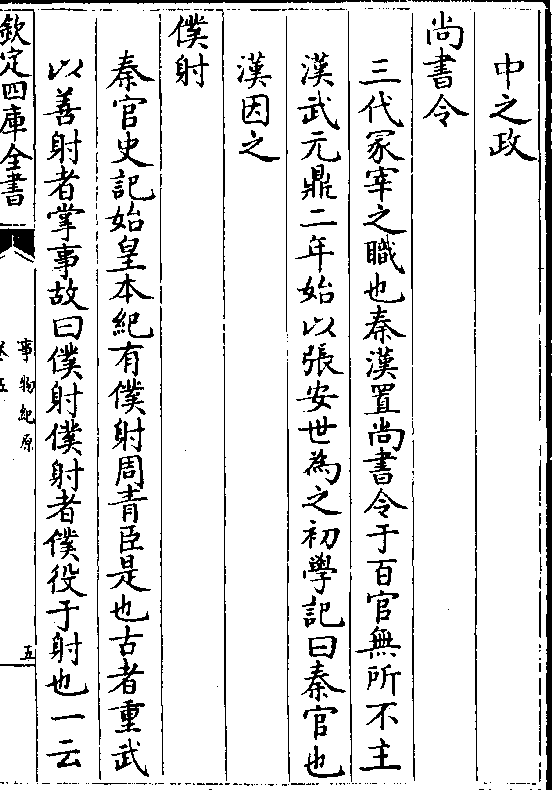 中之政
尚書令
三代冢宰之職也秦漢置尚書令于百官無所不主
漢武元鼎二年始以張安世為之初學記曰秦官也
漢因之
僕射
秦官史記始皇本紀有僕射周青臣是也古者重武
以善射者掌事故曰僕射僕射者僕役于射也一云
欽定四庫全書
事物紀原
卷五
五